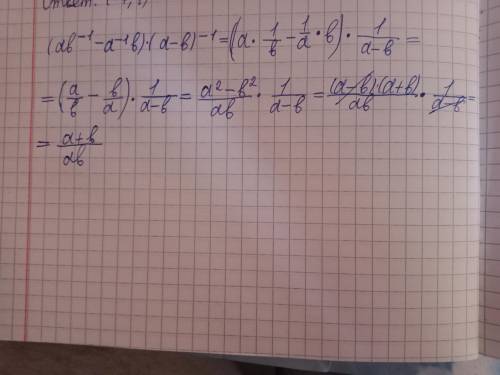 Ответ:
(ab⁻¹-a⁻¹b)·(a-b)⁻¹=(a·1/b-1/a·b)·1/(a-b)=
=(a/b-b/a)·1/(a-b)=(a²-b²)/ab·1/(a-b)=(a-b)(a+b)/ab·1/(a-b)=
=(a+b)/ab